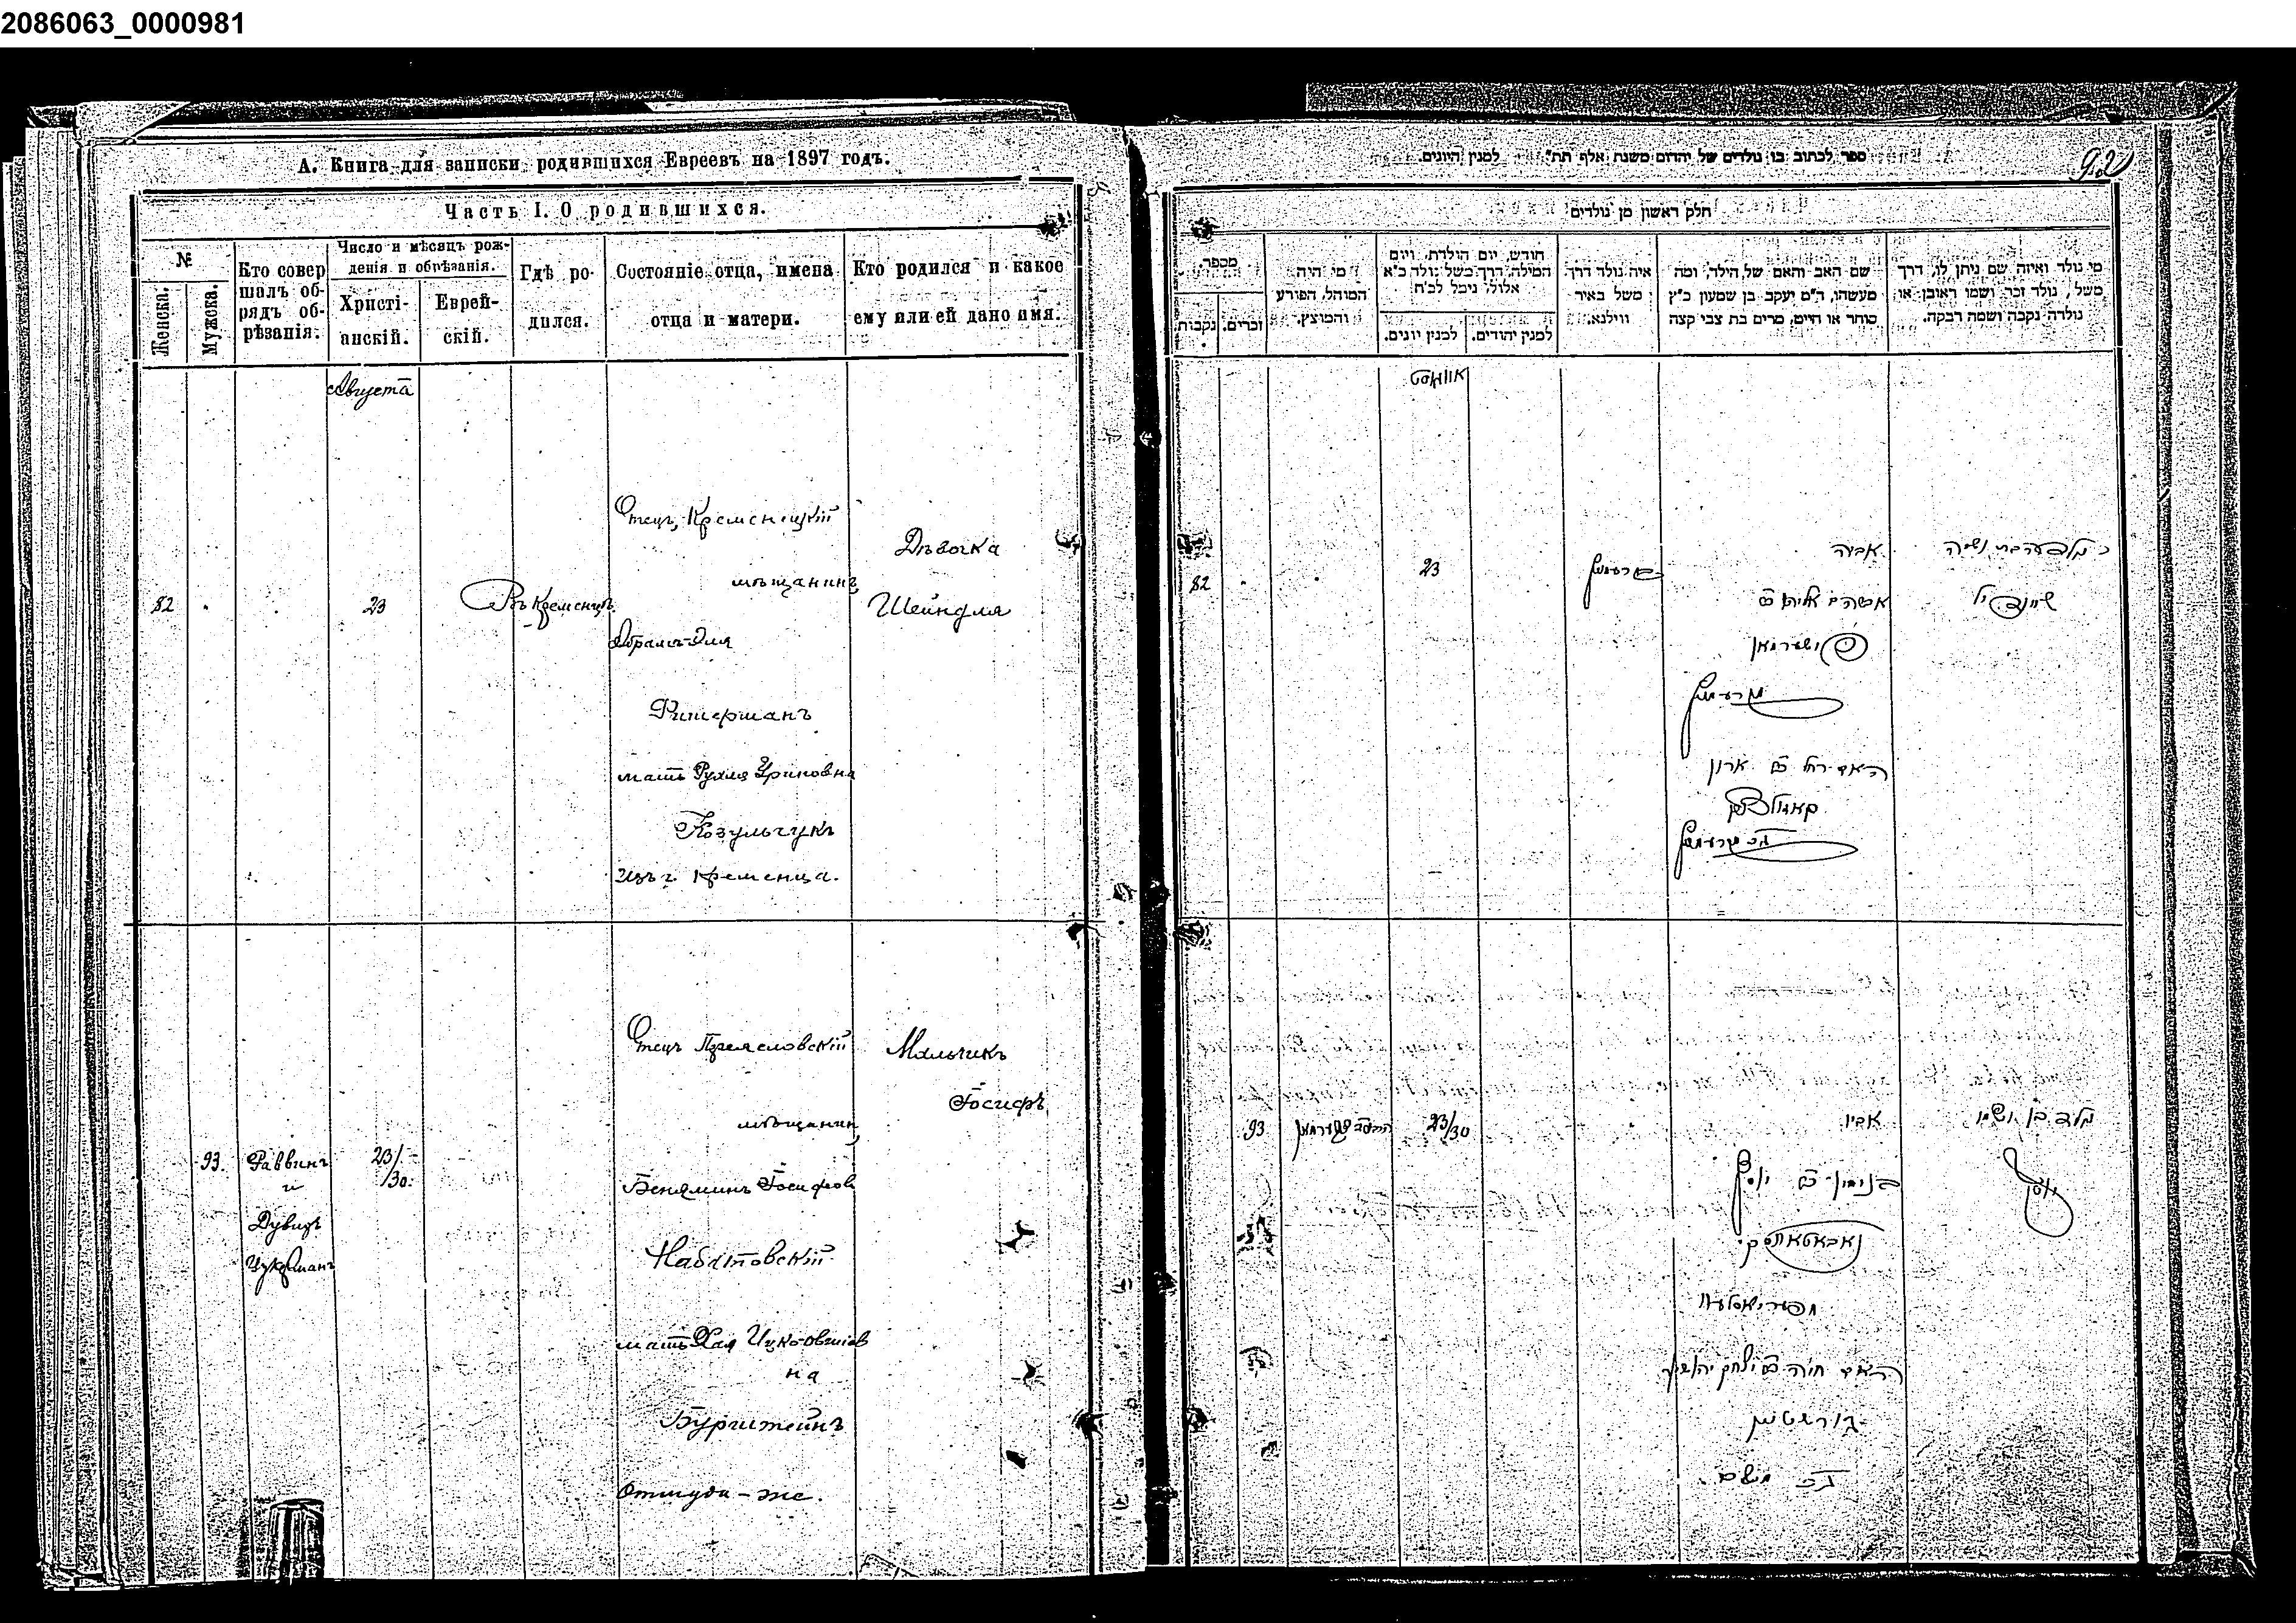 2086063_0000981
А. Книга для записки родившихся Евреевъ на 1897 годъ.
Часть I. О родившихся.
№
Женска.
Мужеска.
Кто совер
шалъ об-
рядъ об-
рѣзанія.
Число и мѣсяцъ рож-
денія и обрѣзанія.
Христі-
анскій.
Еврей-
скій.
Гдѣ ро-
дился.
Состояніе отца, имена
отца и матери.
Кто родился и какое
ему или ей дано имя.
Августа
82
23
Въ Кременцѣ
Отецъ, Кременецкій
мѣщанинъ,
Абрамъ-Эля
Фитерманъ
мать Рухля Ариновна
Козульчукъ
изъ г. Кременца.
Дѣвочка
Шейндля
93.
Раввинъ
и
Дувидъ
Цукерманъ
23/
/30.
Отецъ Переясловскій
мѣщанин,
Беняминъ Іосифов
Набитовскій
мать Хая Ицко-Овшіев
на
Бурштейнъ
Оттуда-же.
Мальчикъ
Іосифъ
ספר לכתוב בו נולדים של יהדום משנת אלף תת" למנין היונים.
92
חלק ראשון מן נולדים
מספר.
נקבות
זכרים.
מי היה
המוהל, הפורע
והמוצץ.
חודש, יום הולדת, ויום
המילה, דרך משל נולד כ"א
אלול, נימל לכ"ח
למנין יונים.
למנין יהודים.
איה נולד דרך
משל באיר
ווילנא.
שם האב והאם של הילד, ומה
מעשהו, ה"מ יעקב בן שמעון כ"ץ
סוחר או חיים, מרים בת צבי קצה
מי נולד ואיזה שם ניתן לו, דרך
משל, נולד זכר, ושמו ראובן, או
נולדה נקבה ושמה רבקה.
אווגוסט
82
23
אביה
אברהם אלי'
האם רחל ארון
שיינדיל
93
23/30
אביו
בנימין יוסף
האם חיה יצחק יהושע
בורשטיין
משם
נולד בן ושמו
יוסף